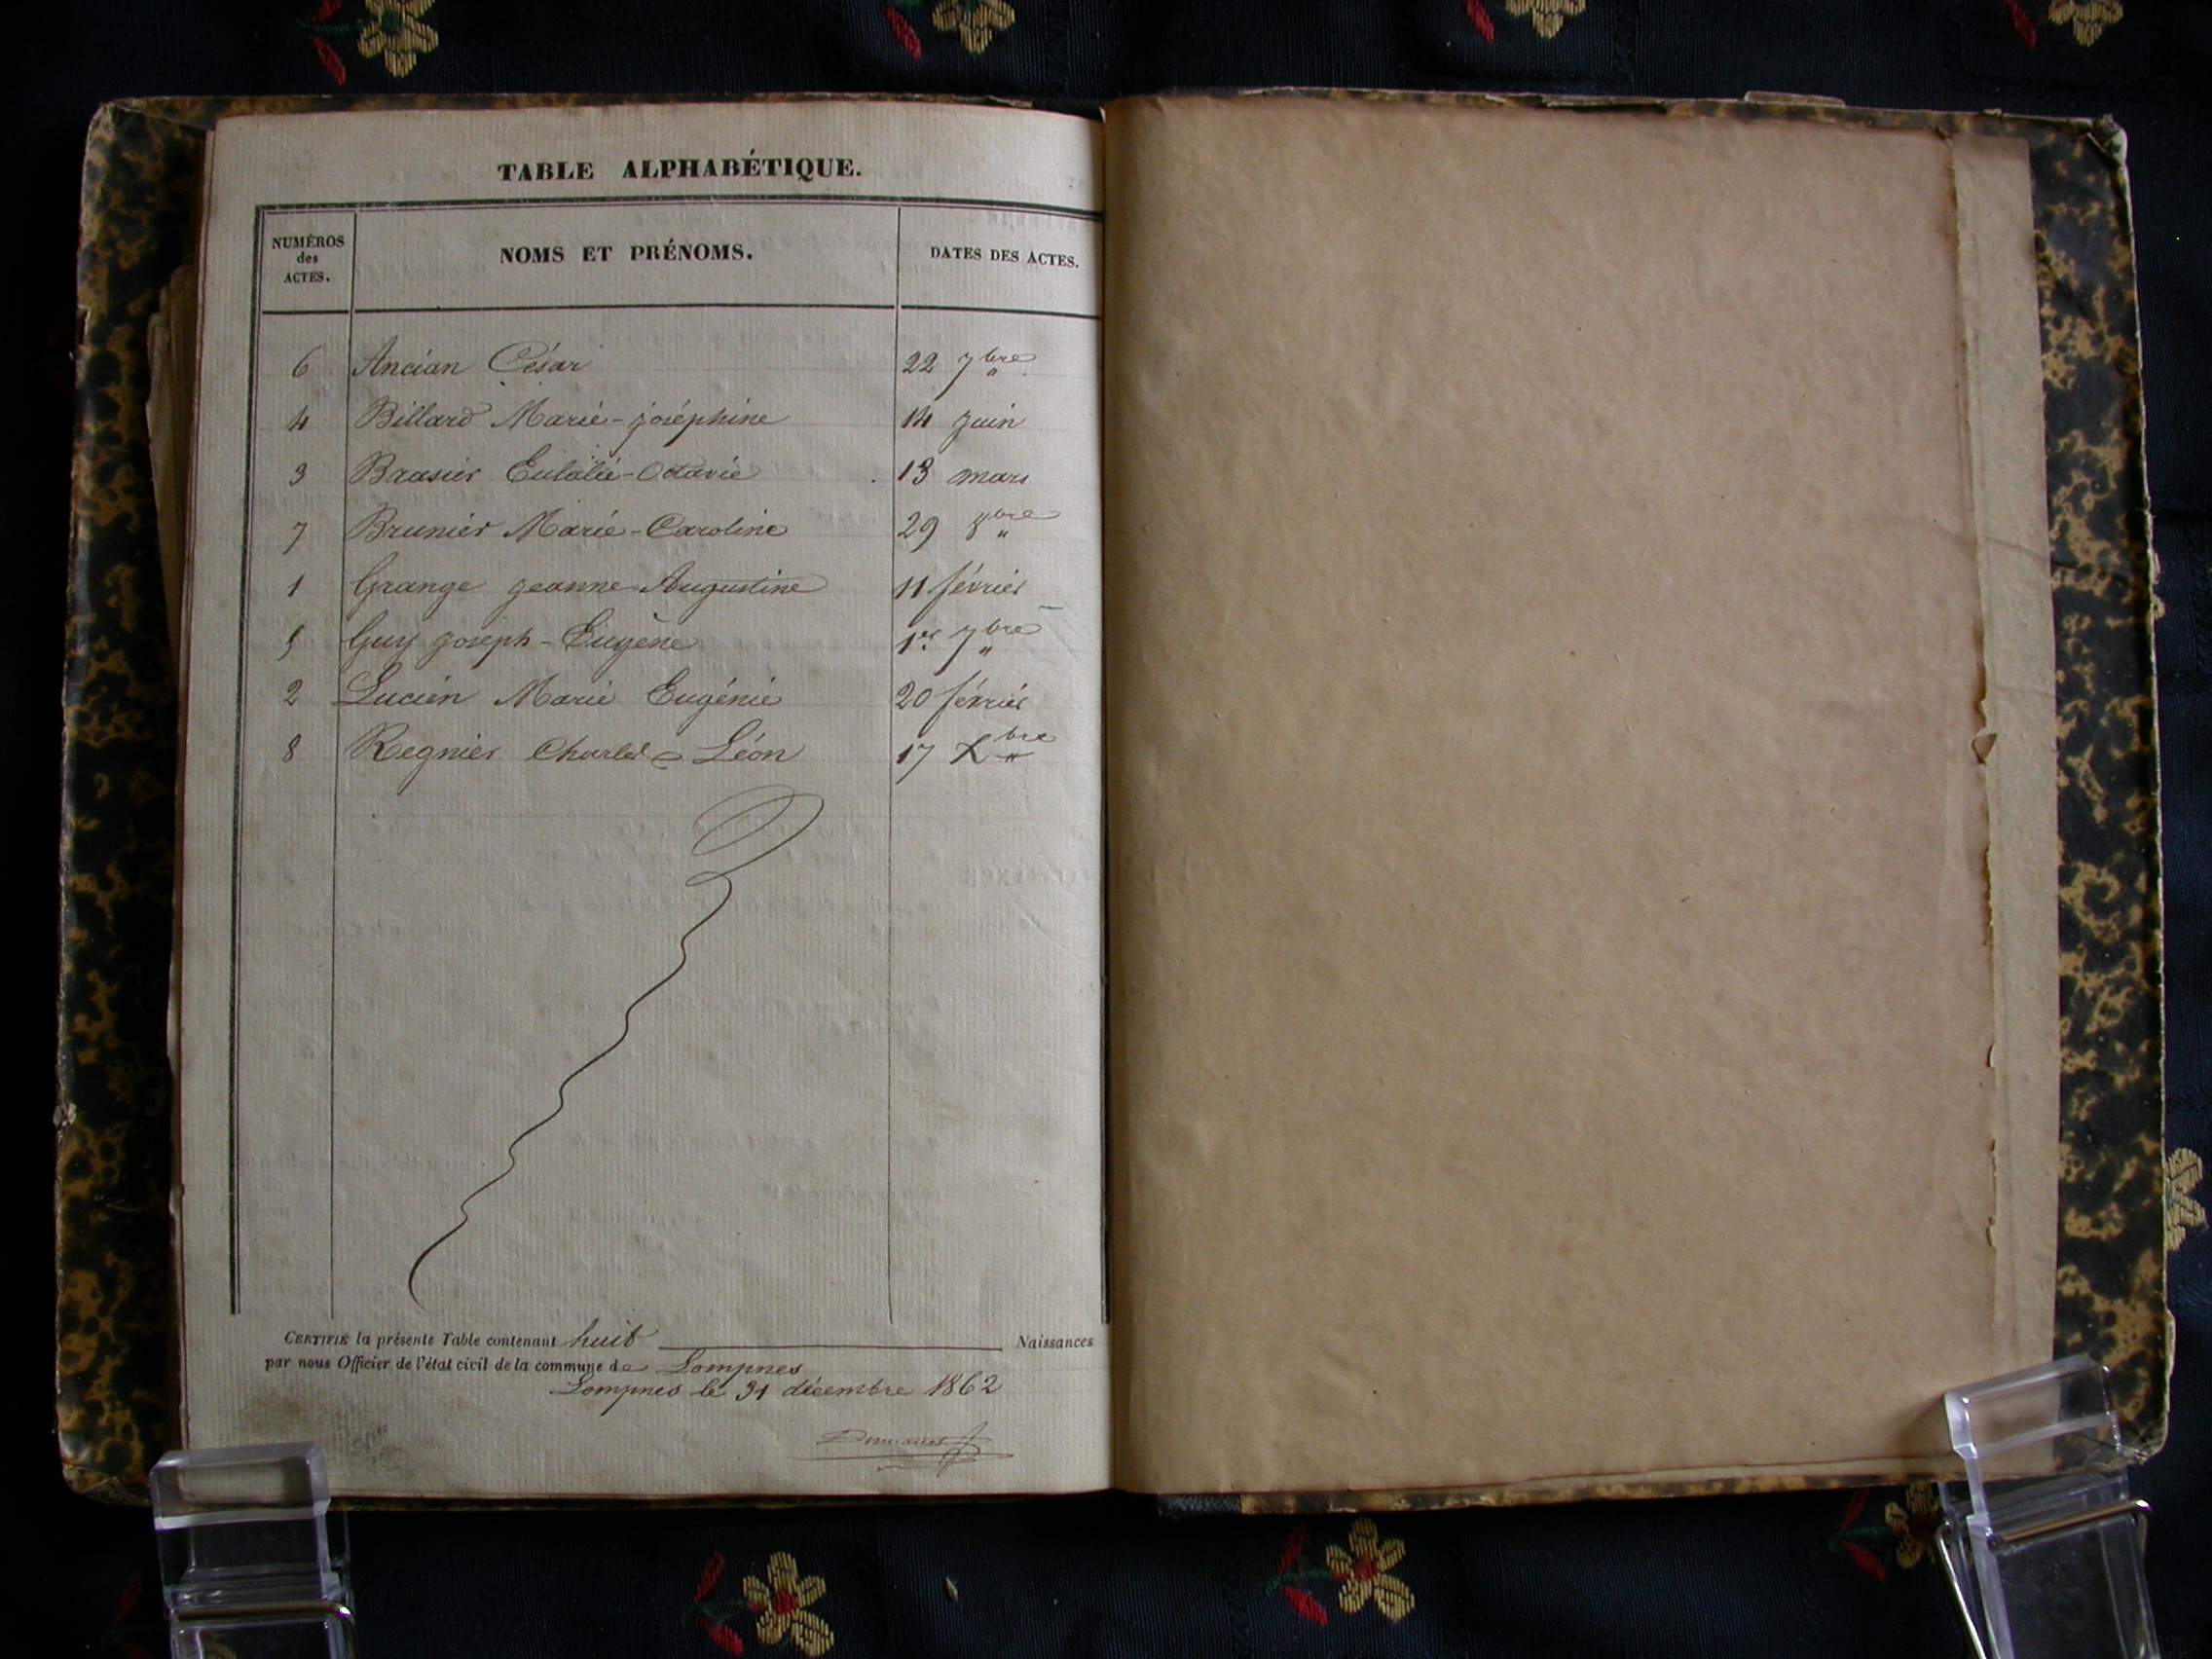 TABLE ALPHABÉTIQUE.
NUMÉROS des ACTES. NOMS ET PRÉNOMS. DATES DES ACTES.
6 Ancian César 22 7bre
4 Billard Marie-joséphine 14 juin
3 Brasier Eulalie-Octavie 13 mars
7 Brunier Marie-Caroline 29 8bre
1 Grange jeanne-Augustine 11 février
5 Guy joseph-Eugène 1er 7bre
2 Lucien Marie Eugénie 20 février
8 Regnier Charles Léon 17 Xbre
CERTIFIÉ la présente Table contenant huit Naissances
par nous Officier de l'état civil de la commune de Lompnes
Lompnes le 31 décembre 1862